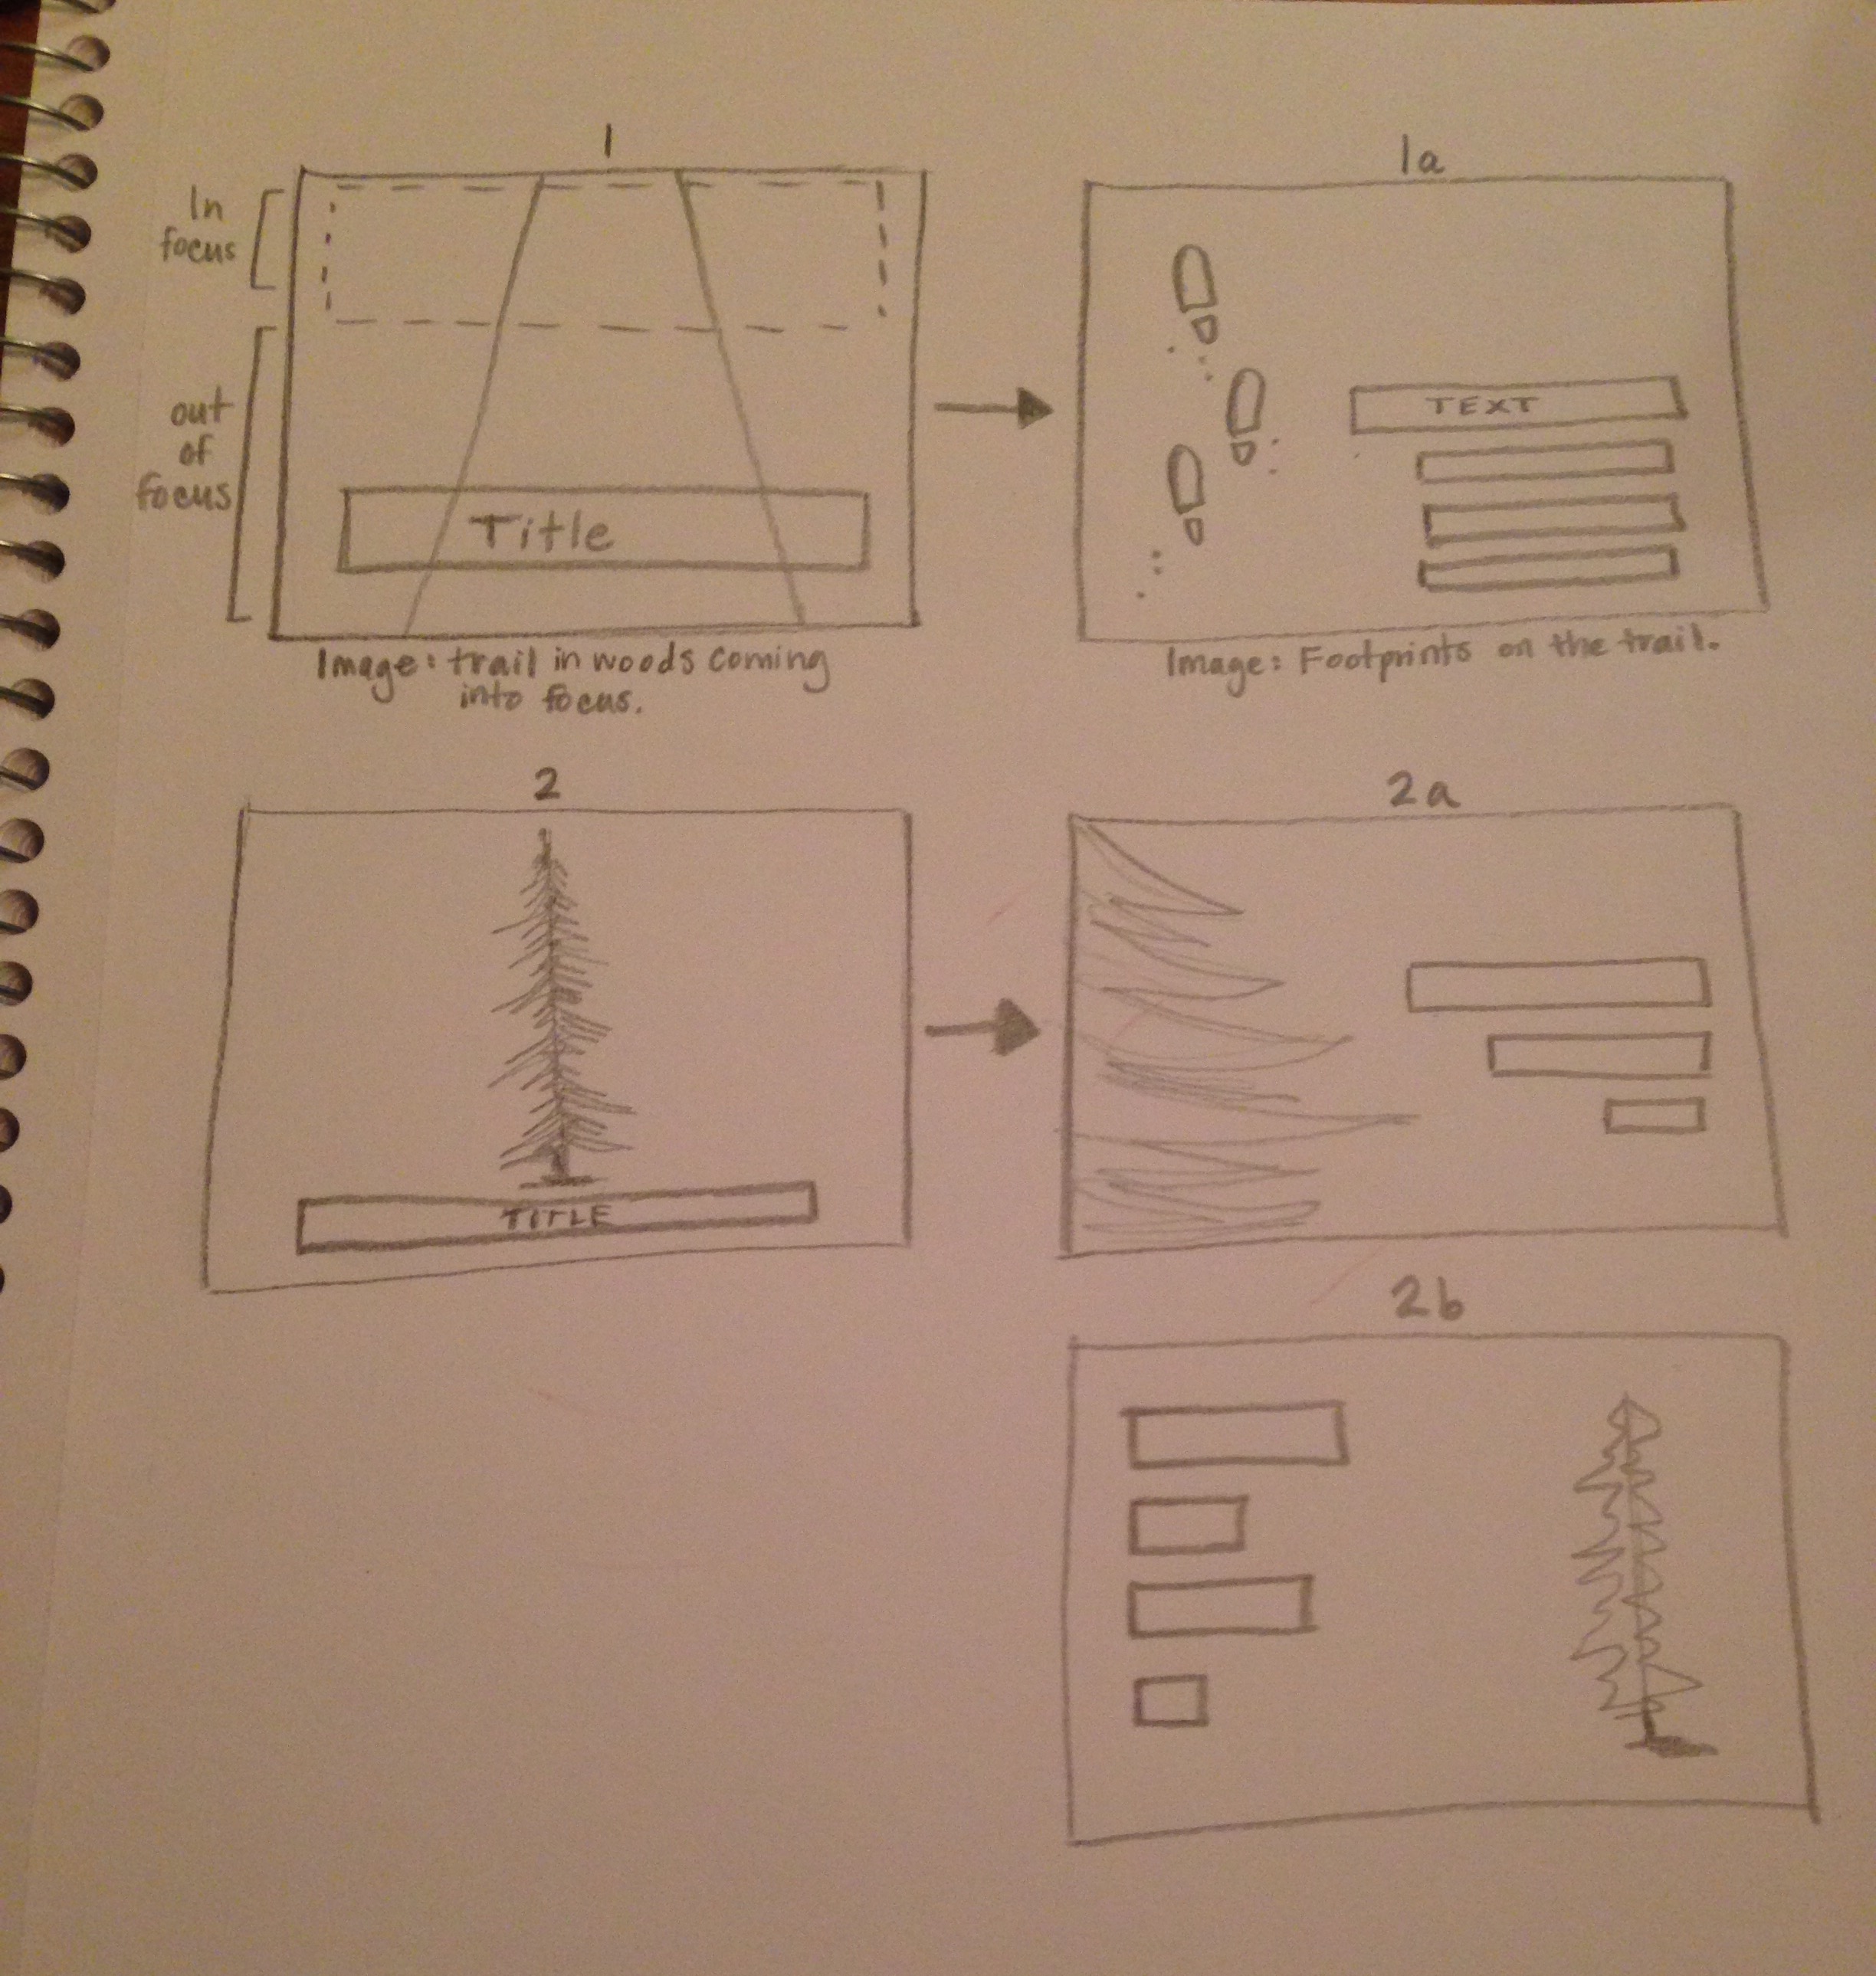 1
In
focus
out
of
focus
Title
Image: trail in woods coming
into focus.
1a
TEXT
Image: Footprints on the trail.
2
TITLE
2a
2b